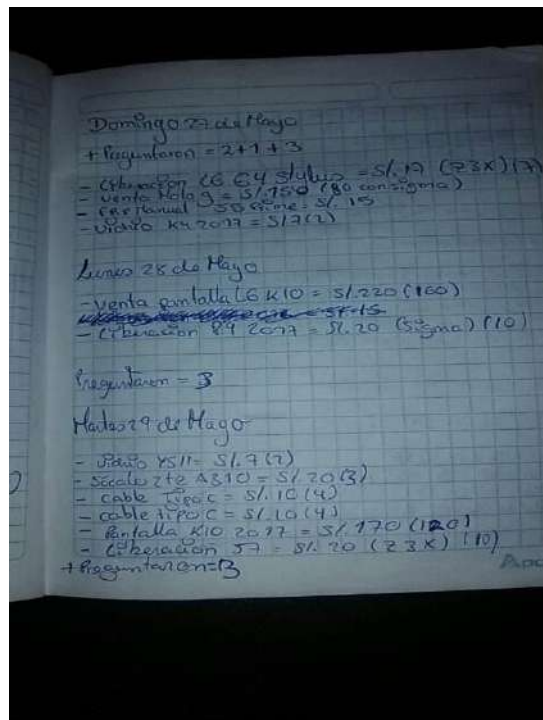 Domingo 27 de Mayo
+ Preguntaron = 2+1+3
- Liberación LG G4 Stylus = S/.17 (Z3X) (7)
- Venta Moto = S/.150 (80 consigma)
- Manual = S/. 15
- Vidrio K4 2017 = S/7(2)
Lunes 28 de Mayo
- Venta pantalla LG K10 = S/.220 (160)
- Liberación 2017 = S/.20 (Sigma) (10)
Preguntaron = 3
Martes 29 de Mayo
- Vidrio Y5II = S/.7(2)
- Socalo Zte A310 = S/.20(3)
- cable Tipo C = S/.10(4)
- cable tipo C = S/.10(4)
- Pantalla K10 2017 = S/.170 (120)
- Liberación J7 = S/. 20 (Z3X) (10)
+ Preguntaron = 3